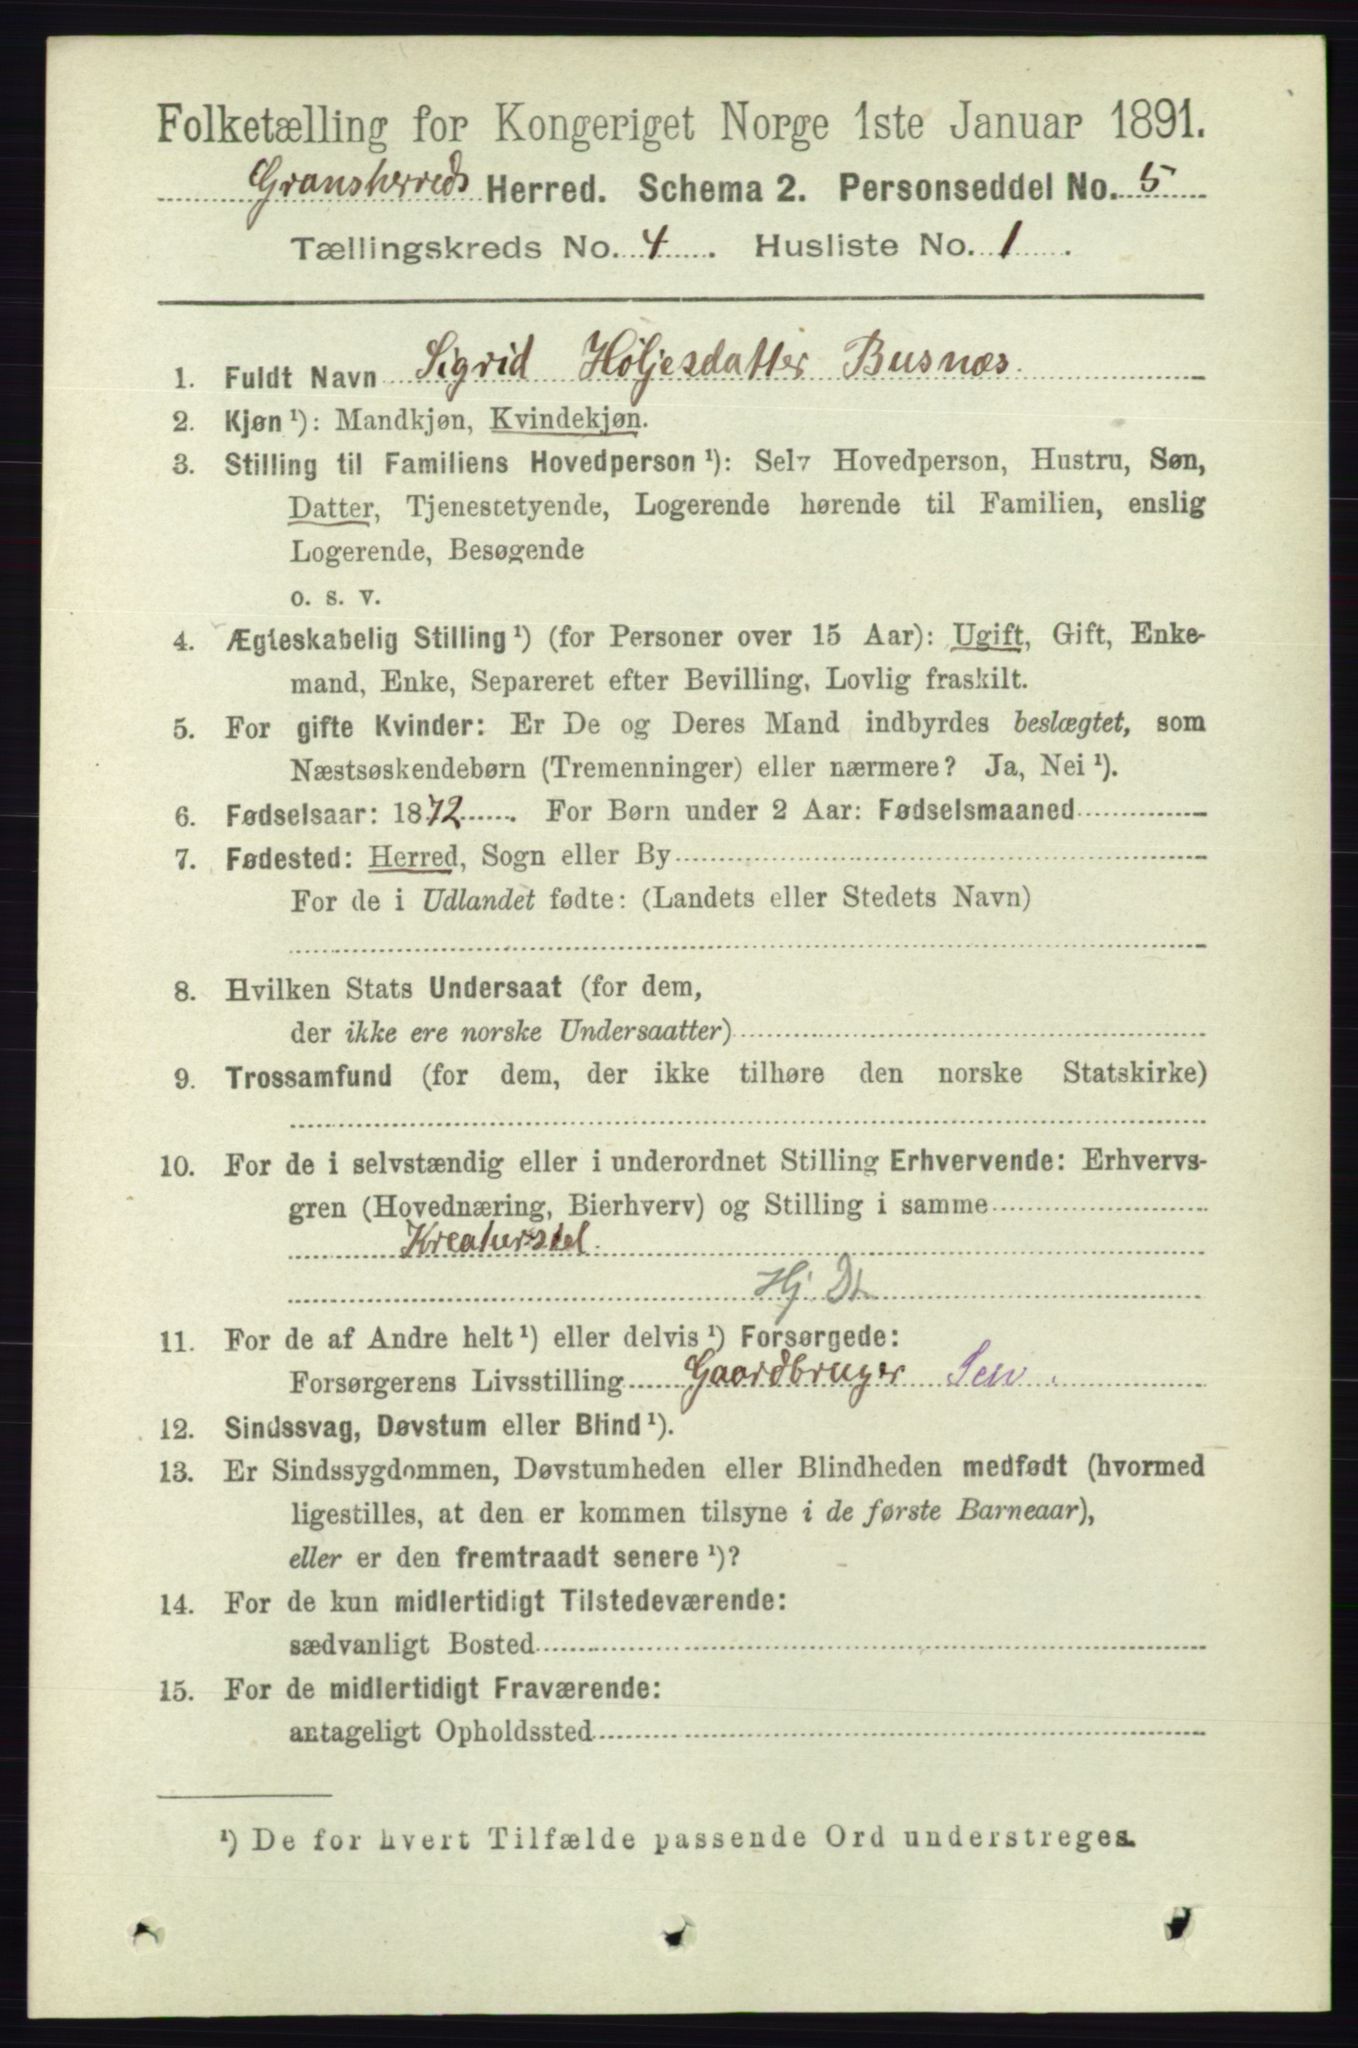 Folketælling for Kongeriget Norge 1ste Januar 1891.
Gransherreds Herred. Schema 2. Personseddel No. 5
Tællingskreds No. 4. Husliste No. 1.
1. Fuldt Navn Sigrid Höljesdatter Busnæs.
2. Kjøn ¹): Mandkjøn, Kvindekjøn.
3. Stilling til Familiens Hovedperson ¹): Selv Hovedperson, Hustru, Søn,
Datter, Tjenestetyende, Logerende hørende til Familien, enslig
Logerende, Besøgende
o. s. v.
4. Ægteskabelig Stilling ¹) (for Personer over 15 Aar): Ugift, Gift, Enke-
mand, Enke, Separeret efter Bevilling, Lovlig fraskilt.
5. For gifte Kvinder: Er De og Deres Mand indbyrdes beslægtet, som
Næstsøskendebørn (Tremenninger) eller nærmere? Ja, Nei ¹).
6. Fødselsaar: 1872. For Børn under 2 Aar: Fødselsmaaned
7. Fødested: Herred, Sogn eller By
For de i Udlandet fødte: (Landets eller Stedets Navn)
8. Hvilken Stats Undersaat (for dem,
der ikke ere norske Undersaatter)
9. Trossamfund (for dem, der ikke tilhøre den norske Statskirke)
10. For de i selvstændig eller i underordnet Stilling Erhvervende: Erhvervs-
gren (Hovednæring, Bierhverv) og Stilling i samme
Kreaturstel.
Hj Dt
11. For de af Andre helt ¹) eller delvis ¹) Forsørgede:
Forsørgerens Livsstilling Gaardbruger
12. Sindssvag, Døvstum eller Blind ¹).
13. Er Sindssygdommen, Døvstumheden eller Blindheden medfødt (hvormed
ligestilles, at den er kommen tilsyne i de første Barneaar),
eller er den fremtraadt senere ¹)?
14. For de kun midlertidigt Tilstedeværende:
sædvanligt Bosted
15. For de midlertidigt Fraværende:
antageligt Opholdssted
¹) De for hvert Tilfælde passende Ord understreges.